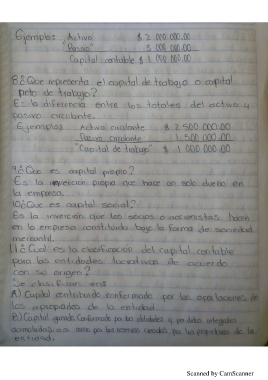 Ejemplo: Activo $ 2 000 000.00
Pasivo" 000 000.00
Capital contable $ 1 000 000.00
8¿Que representa el capital de trabajo o capital
neto de trabajo?
Es la diferencia entre los totales del activo y
pasivo circulante.
Ejemplo: Activo circulante $ 2 500 000.00
Pasivo circulante 1 500 000.00
"Capital de trabajo" $ 1 000 000.00
9¿Que es capital propio?
Es la inversion propia que hace un solo dueño en
la empresa.
10¿Que es capital social?
Es la inversion que los socios o accionistas hacen
en la empresa constituida bajo la forma de sociedad
mercantil.
11¿Cual es la clasificación del capital contable
para las entidades lucrativas de acuerdo
con su origen?
Se clasifica en:
A) Capital contribuido conformado por las aportaciones de
los propietarios de la entidad
B) Capital ganado Conformado por las utilidades y perdidas integradas
acumuladas asi como por las reservas creadas por los propietarios de la
entidad.
Scanned by CamScanner